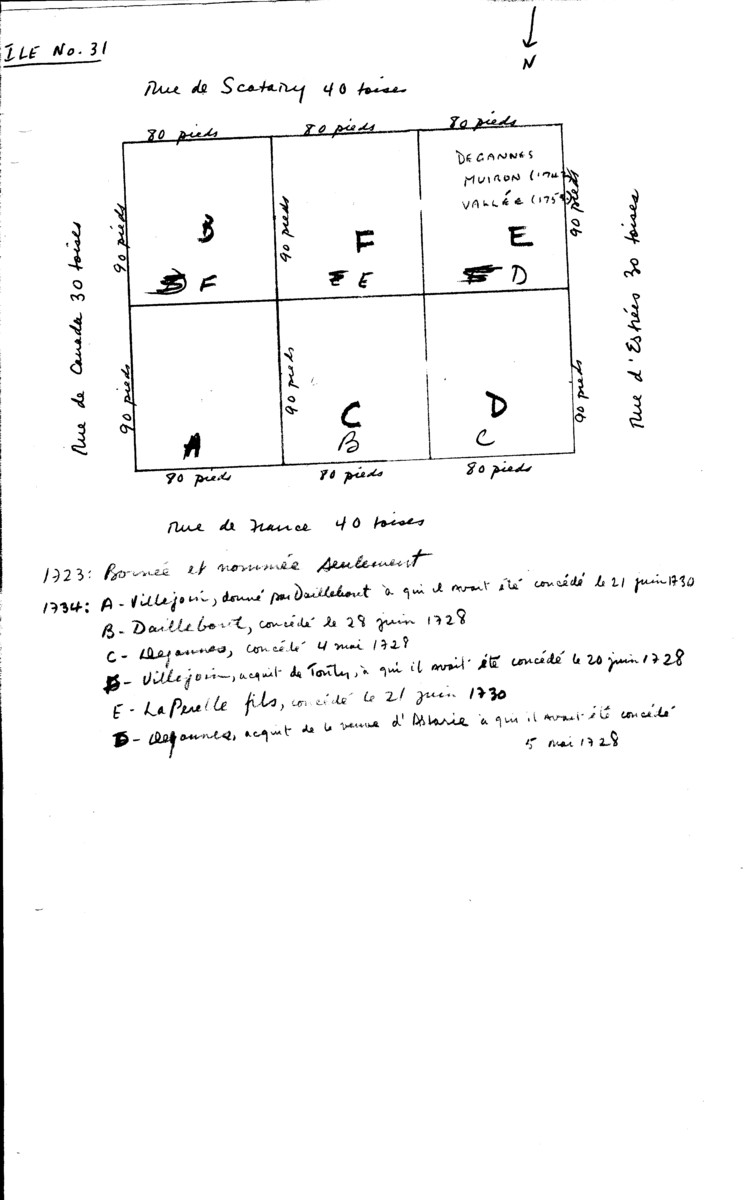 ILE No. 31
N
Rue de Scatary 40 toises
80 pieds 80 pieds 80 pieds
DEGANNES
MUIRON (174
VALLÉE (175
90 pieds 90 pieds 90 pieds
Rue de Canada 30 toises
Rue d'Estrées 30 toises
G F E
F E D
90 pieds 90 pieds 90 pieds
C D
A B C
80 pieds 80 pieds 80 pieds
Rue de France 40 toises
1723: Bornée et nommée seulement
1734: A - Villejoin, donné par Daillebout à qui il avait été concédé le 21 juin 1730
B - Daillebout, concédé le 28 juin 1728
C - Degannes, concédé 4 mai 1728
Villejoin, acquit de Tonty, à qui il avait été concédé le 20 juin 1728
E - La Perelle fils, concédé le 21 juin 1730
Degannes, acquit de la veuve d'Astarie à qui il avait été concédé
5 mai 1728